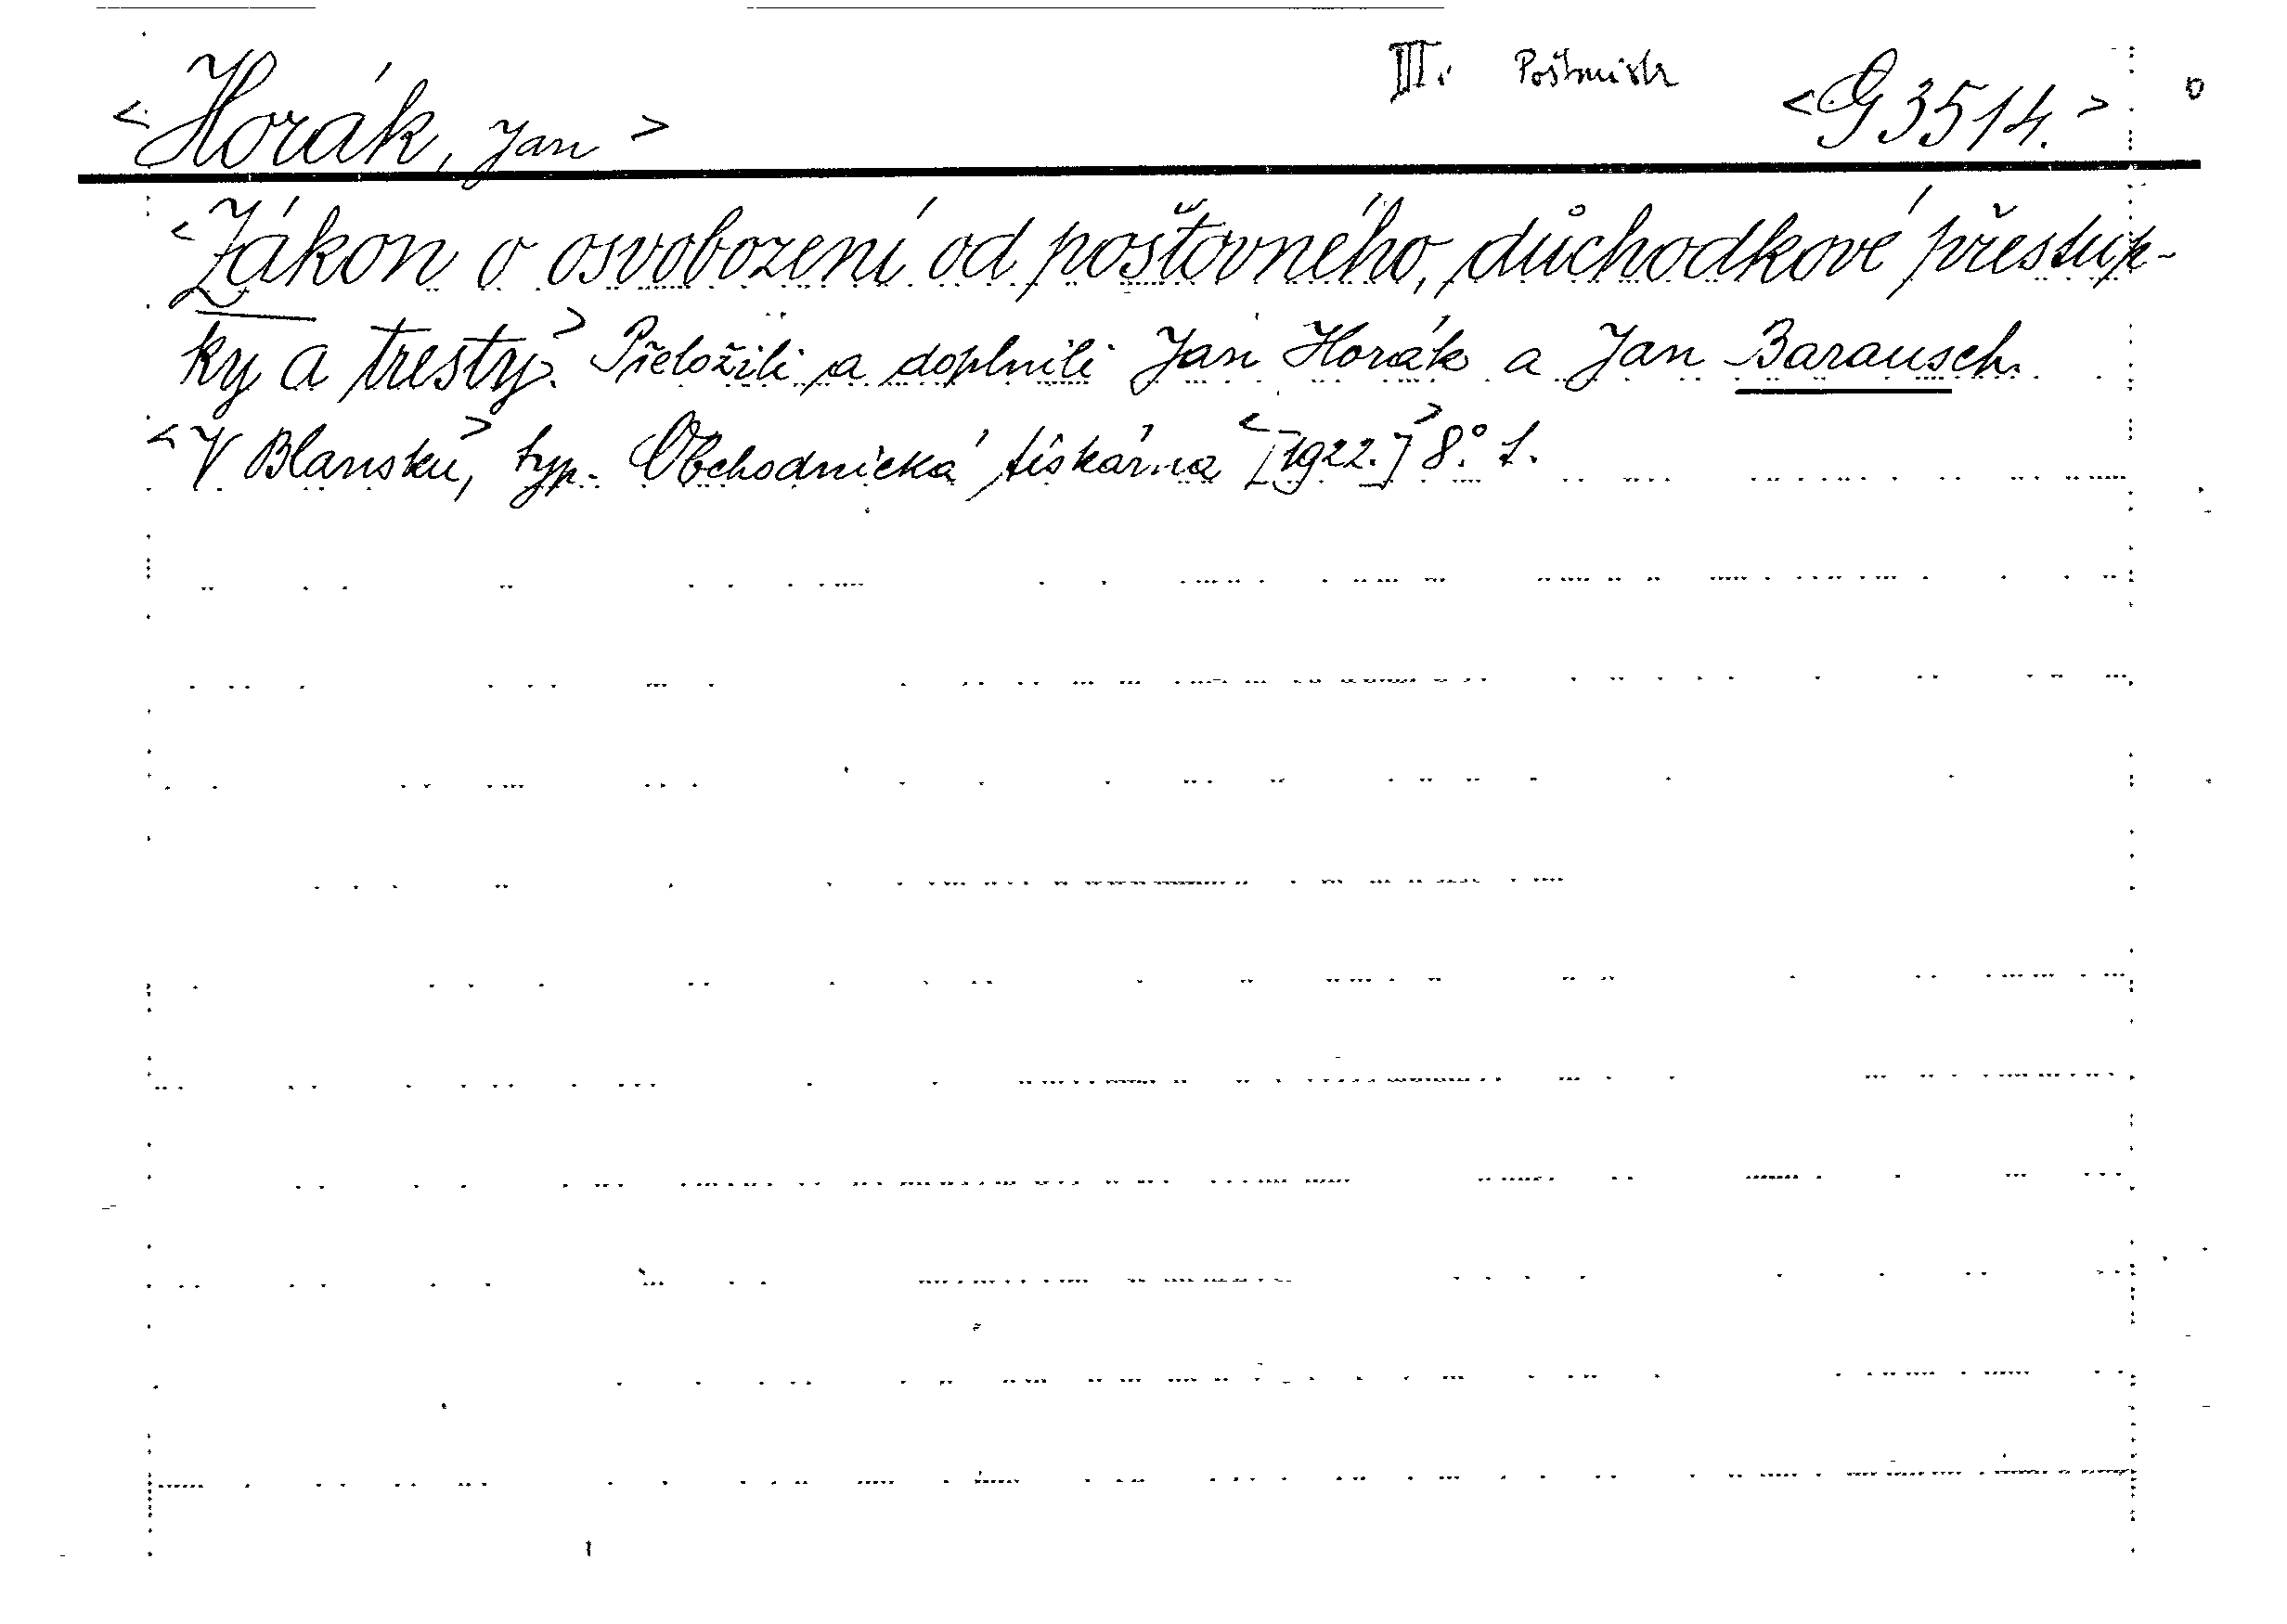 III. Poštmistr
<Horák, Jan> <G 3514.>
<Zákon o osvobození od poštovného, důchodkové přestup-
ky a tresty.> Přeložili a doplnili Jan Horák a Jan Barausch.
<V Blansku,> typ. Obchodnická tiskárna <[1922.]> 8.° 1.